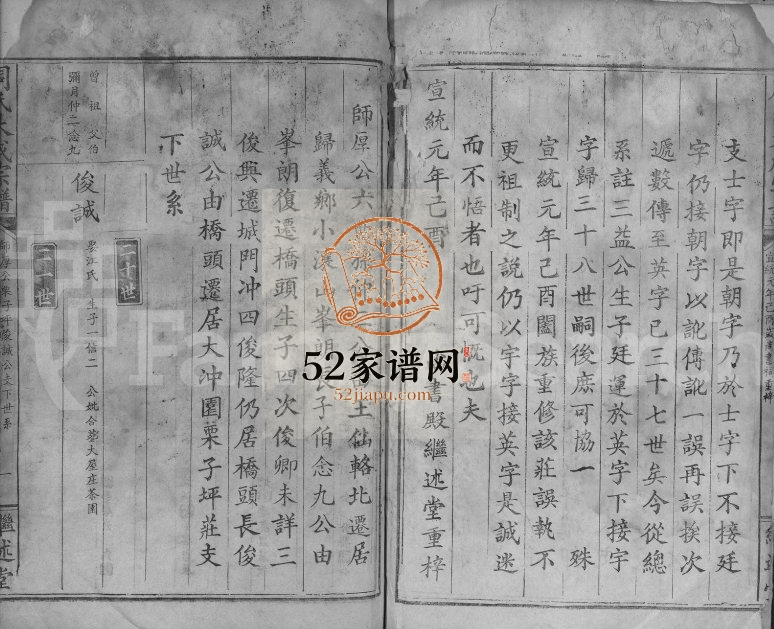 支士字即是朝字乃於士字下不接廷
字仍接朝字以訛傳訛一誤再誤挨次
遞數傳至英字已三十七世矣今從總
系註三益公生子廷運於英字下接宇
字歸三十八世嗣後庶可協一 殊
宣統元年己酉闔族重修該莊誤執不
更祖制之說仍以宇字接英字是誠迷
而不悟者也吁可慨也夫
宣統元年己酉 書殿繼述堂重梓
師厚公六 公 生仙輅北遷居
歸義鄉小溪山峯朗 子伯念九公由
峯朗復遷橋頭生子四次俊卿未詳三
俊興遷城門冲四俊隆仍居橋頭長俊
誠公由橋頭遷居大冲園栗子坪莊支
下世系
二十世
二一世
曾祖父伯
彌月仲二念九
俊誠
娶江氏 生子一信二 公妣合葬大屋庄茶園
氏 宗譜
師厚公 俊誠公支下世系
一
繼述堂
52家谱网
52jiapu.com